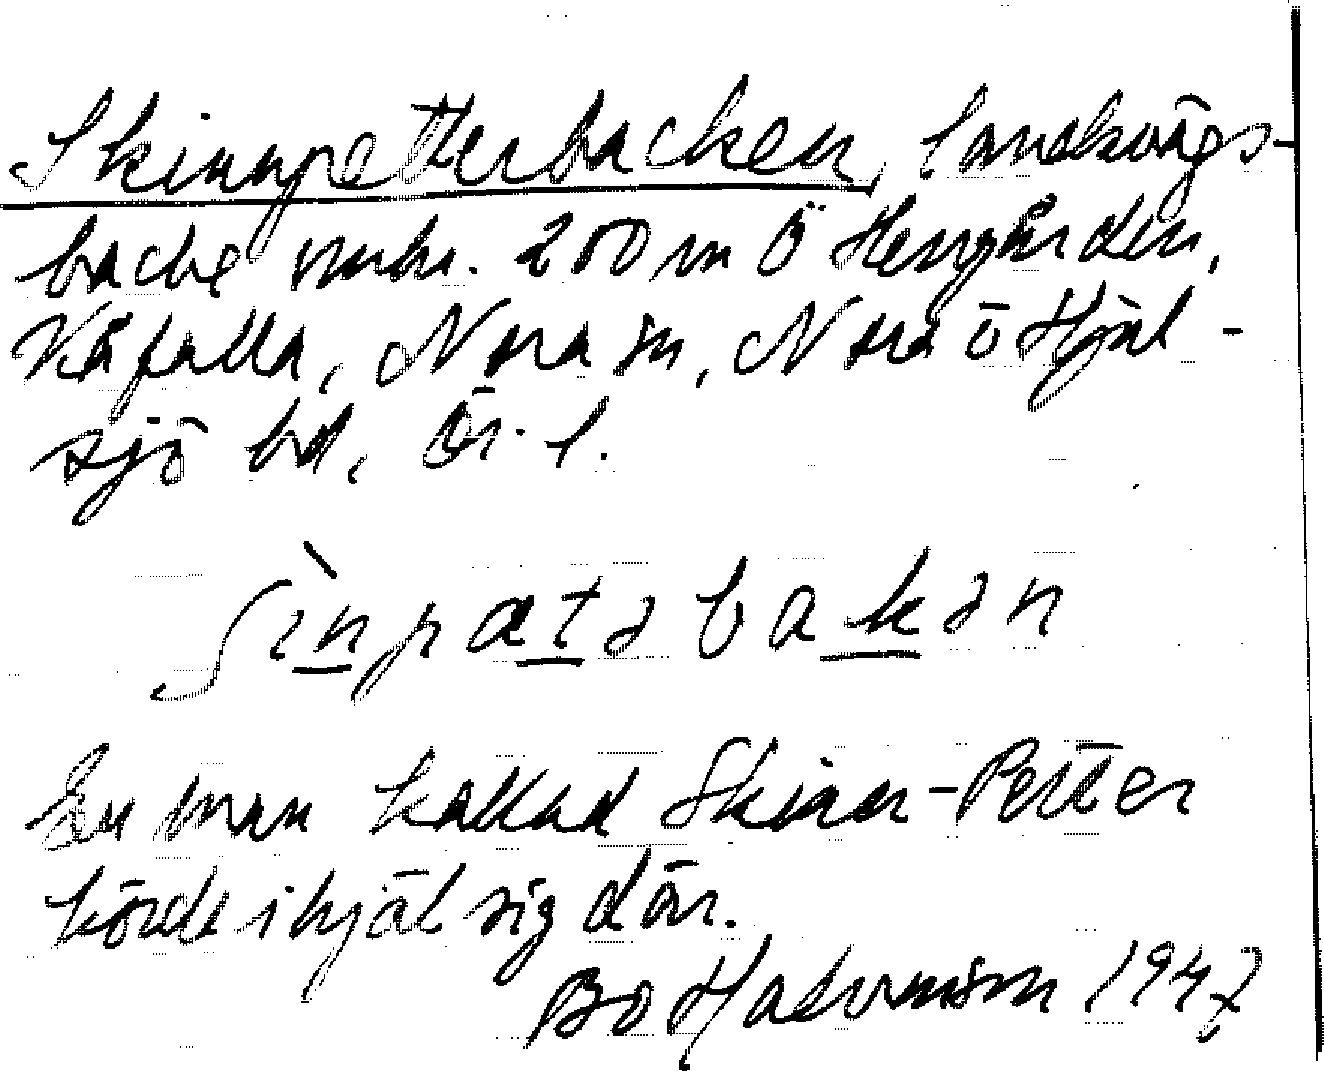 Skinnpetterbacken, landsvägs-
backe omkr. 200 m Ö Herrgården,
Kåfalla, Nora sn, Nora ö Hjul-
sjö bd, Ör. l.
ʃìnpætəbakən
En man kallad Skinn-Petter
körde ihjäl sig där.
Bo Halvarsson 1947